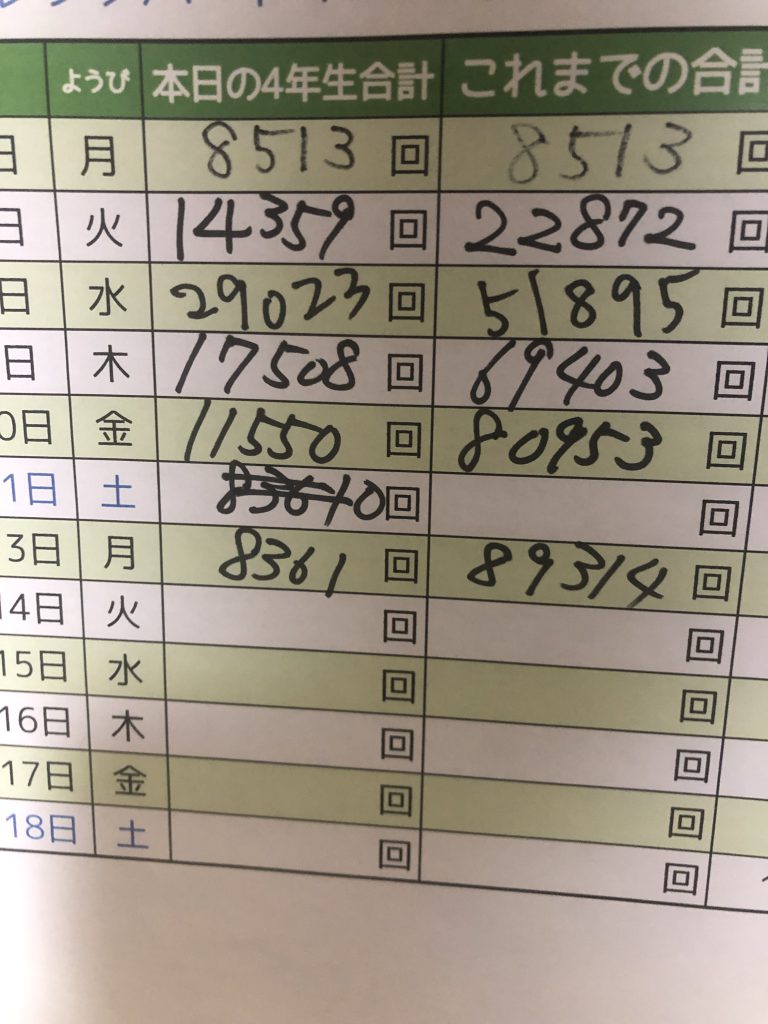 ようび 本日の4年生合計 これまでの合計
日 月 8513 回 8513 回
日 火 14359 回 22872 回
日 水 29023 回 51895 回
日 木 17508 回 69403 回
0日 金 11550 回 80953 回
1日 土 回 回
3日 月 8361 回 89314 回
14日 火 回 回
15日 水 回 回
16日 木 回 回
17日 金 回 回
18日 土 回 回